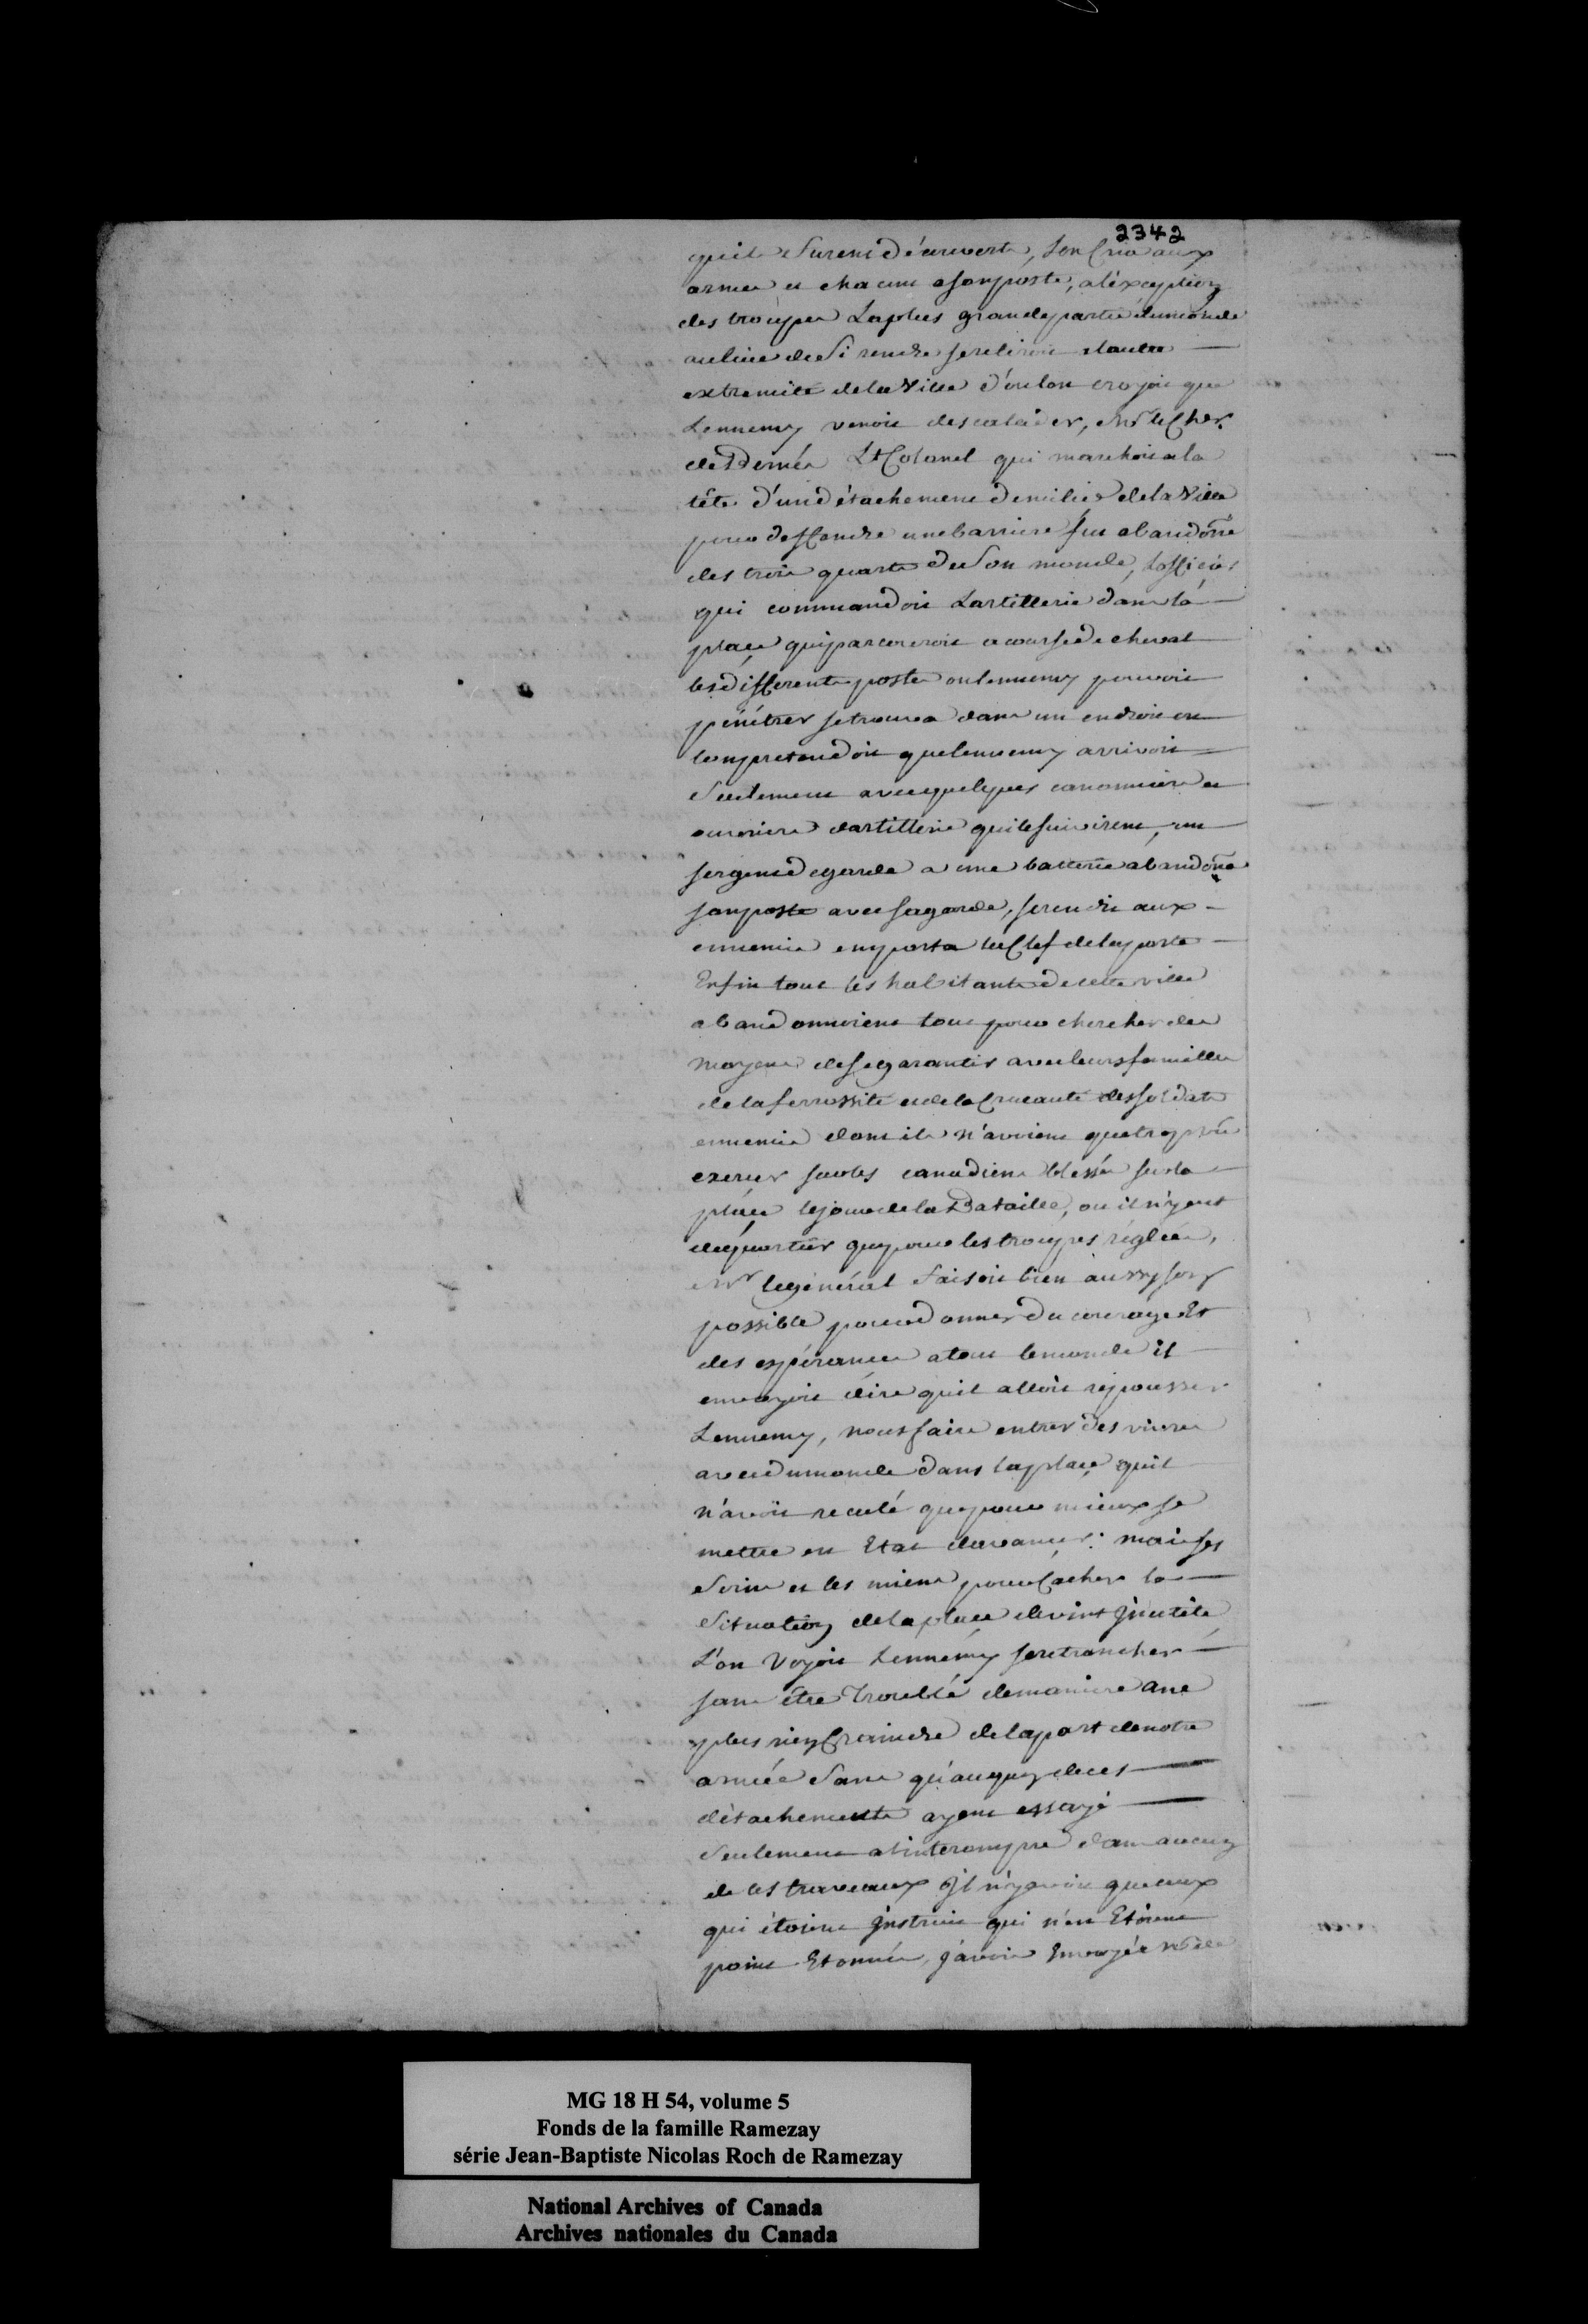 2342
quils furent découverts, Lon Cria aux
armes et chacun a son poste, a l'exception
des troupes La plus grande partie du monde
au lieu de Si rendre se retiroit a lautre
extremité de la Ville d'ou lon croyoit que
Lennemy venoit descalader, Mr le Cher.
de Bernés Lt Colonel qui marchoit a la
tête d'un détachement de milice de la Ville
pour deffendre une barriere fut abandoné
des trois quarts de Son monde, Lofficier
qui commandoit Lartillerie dans la
place qui parcouroit a course de cheval
les différents postes ou lennemy pouvoit
pénétrer se trouva dans un endroit ou
lon pretendoit que lennemy arrivoit
Seulement avec quelques canonniers et
ouvriers dartillerie qui le suivirent, un
sergent de garde a une batterie abandona
son poste avec sa garde, se rendit aux
ennemis emporta la Clef de la porte
Enfin tout les habitants de cette ville
abandonnoient tout pour chercher des
moyens de se garantir avec leurs familles
de la ferossité et de la Cruauté des soldats
ennemis dont ils n'avoient que trop vû
exercer sur les canadiens blessés sur la
place le jour de la Bataille, ou il n'y eut
de quartier que pour les troupes réglées,
Mr le général faisoit bien aussy son
possible pour donner du courage Et
des espérances a tout le monde il
envoyoit dire quil alloit repousser
Lennemy, nous faire entrer des vivres
avec du monde dans la place quil
n'avoit reculé que pour mieux se
mettre en Etat davancer: mais ses
soins et les miens pour Cacher la
Situation de la place devint Jnutile
L'on Voyoit Lennemy se retrancher
sans être Troublé de maniere a ne
plus rien Craindre de la part de notre
armée Sans qu'aucun de ces
détachements ayent essayé
Seulement a linterompre dans aucun
de ces travaux Jl n'y avoit que ceux
qui étoient Jnstruit qui n'en Etoient
point Etonnés, J'avois Envoyée
MG 18 H 54, volume 5
Fonds de la famille Ramezay
série Jean-Baptiste Nicolas Roch de Ramezay
National Archives of Canada
Archives nationales du Canada